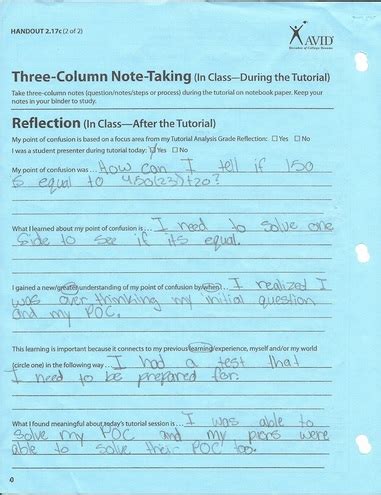 HANDOUT 2.17c (2 of 2)
AVID
Decades of College Dreams
Three-Column Note-Taking (In Class—During the Tutorial)
Take three-column notes (question/notes/steps or process) during the tutorial on notebook paper. Keep your
notes in your binder to study.
Reflection (In Class—After the Tutorial)
My point of confusion is based on a focus area from my Tutorial Analysis Grade Reflection: □ Yes □ No
I was a student presenter during tutorial today: ☑ Yes □ No
My point of confusion was ... How can I tell if 150
is equal to 450(23)+20?
What I learned about my point of confusion is ... I need to solve one
side to see if its equal.
I gained a new/greater understanding of my point of confusion by/when) ... I realized I
was over thinking my initial question
and my POC.
This learning is important because it connects to my previous learning/experience, myself and/or my world
(circle one) in the following way ... I had a test that
I need to be prepared for.
What I found meaningful about today's tutorial session is ... I was able to
solve my POC and my piers were
able to solve their POC too.